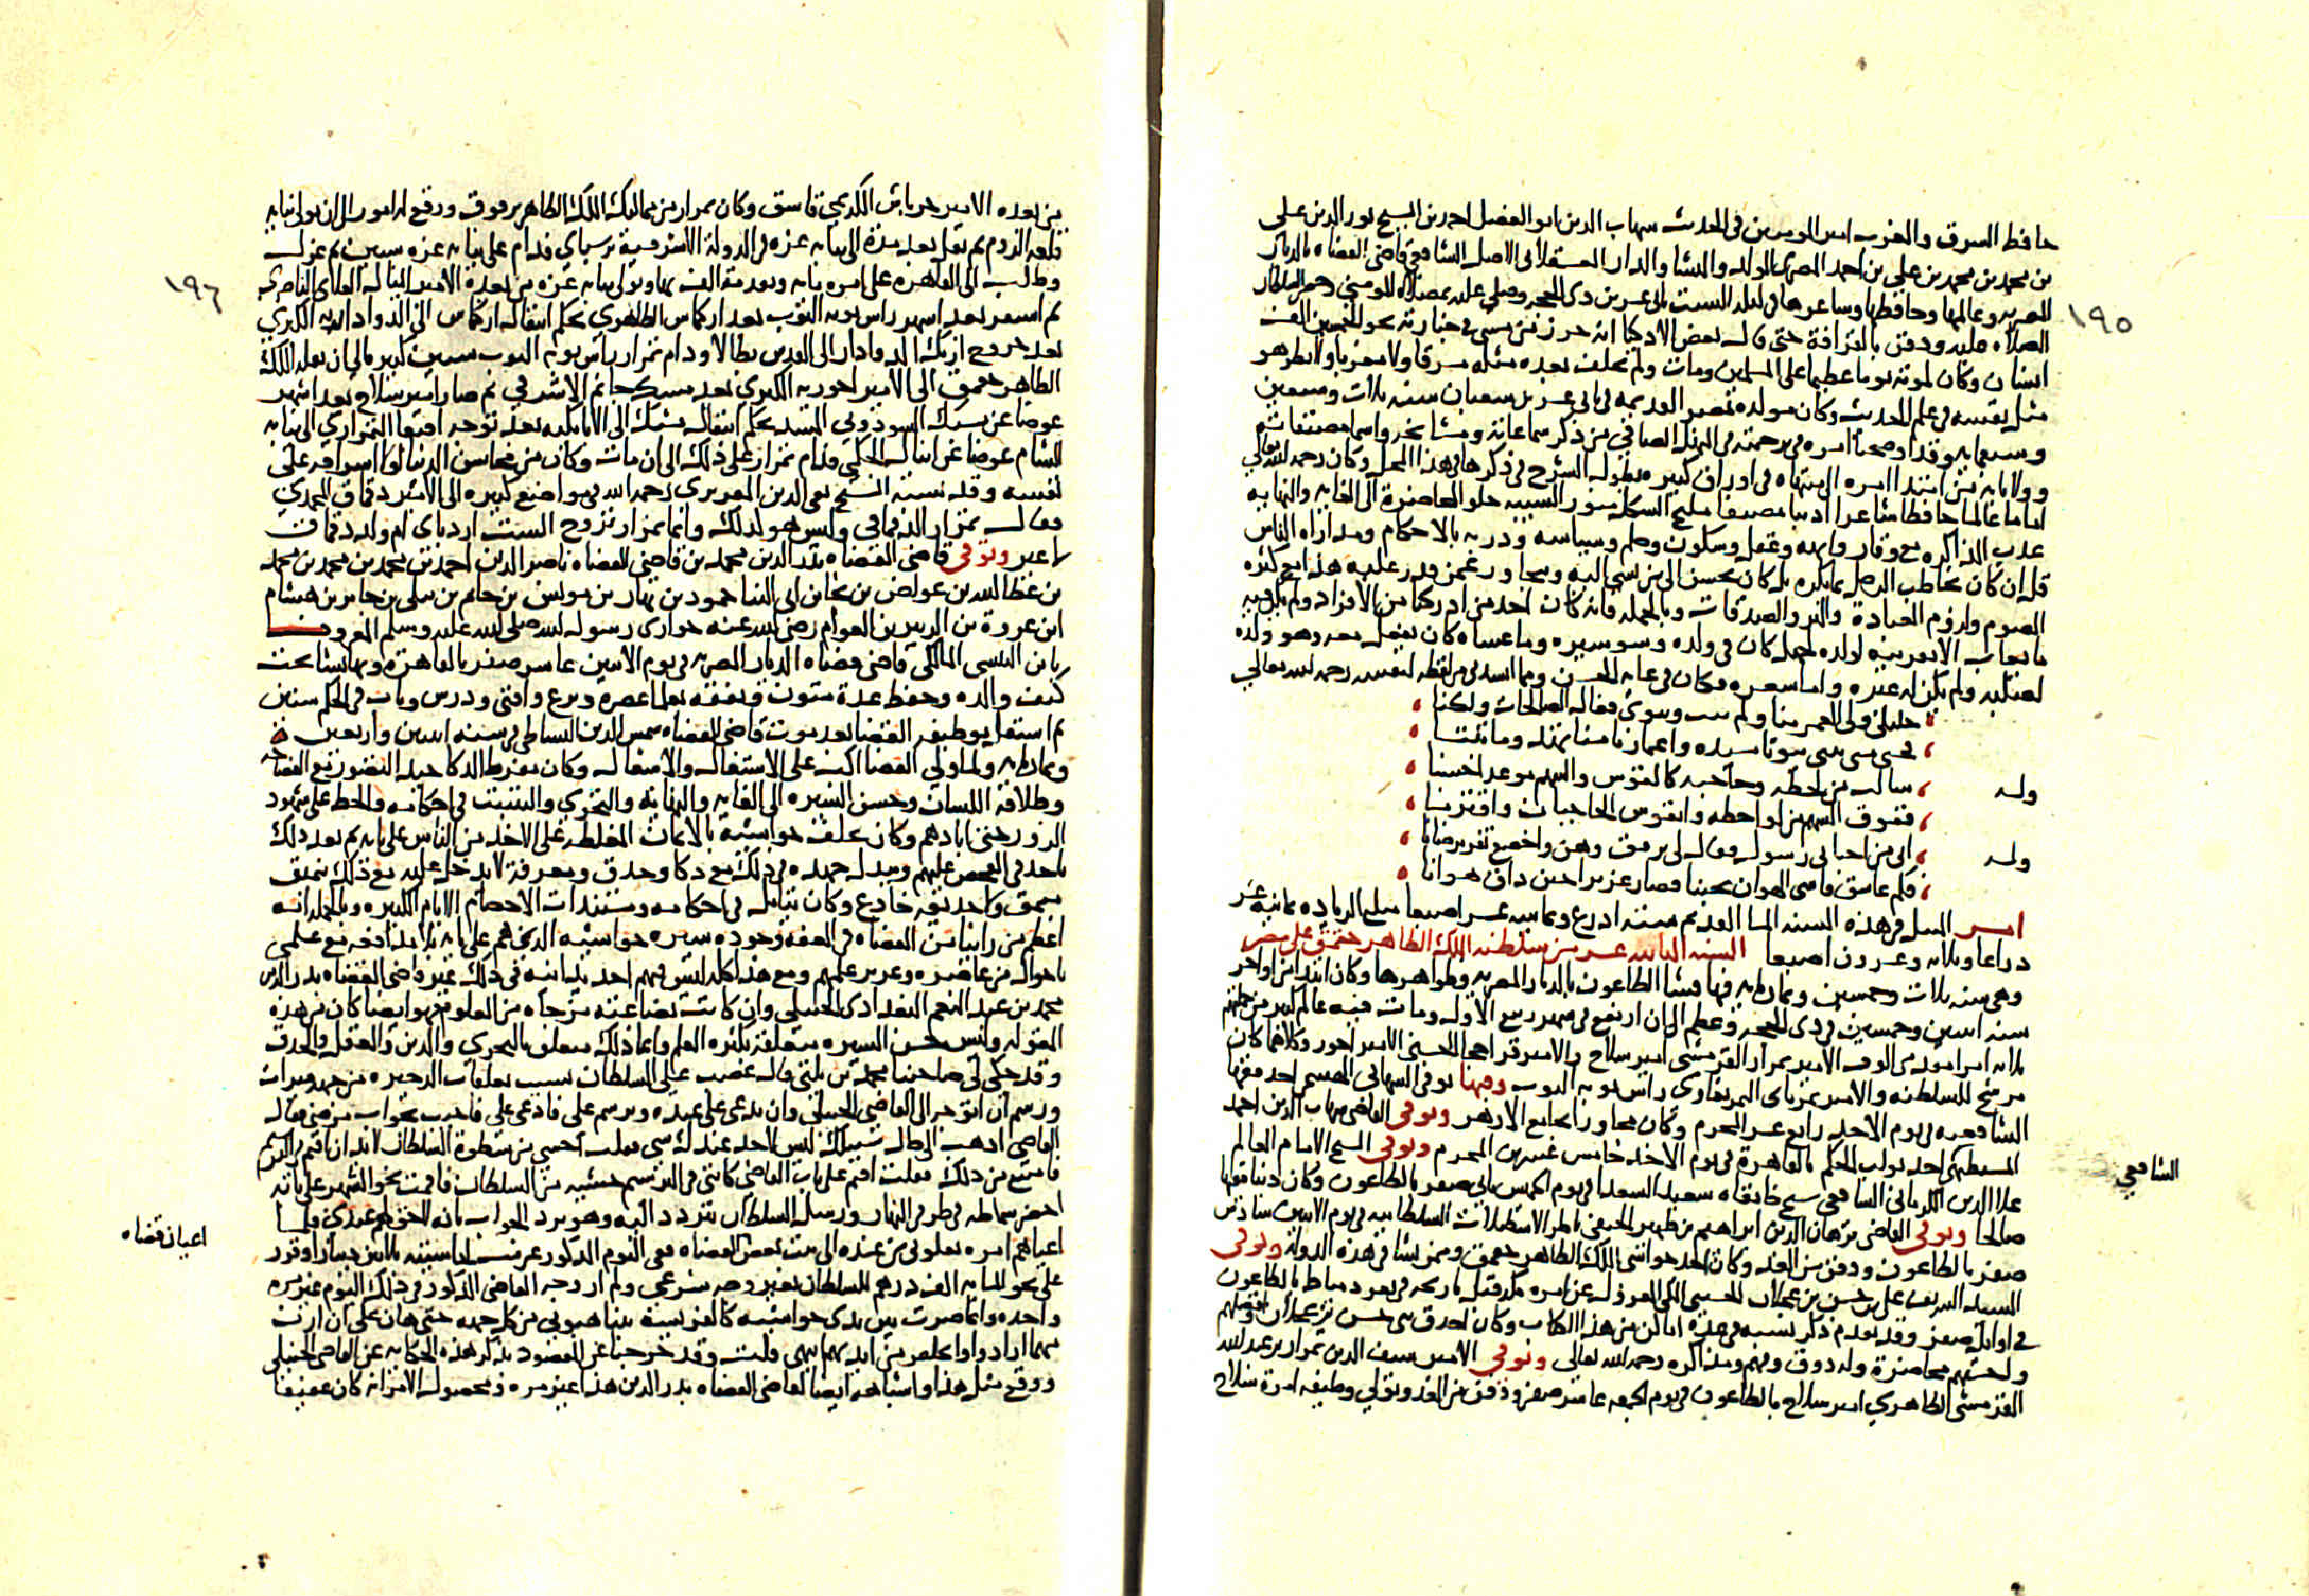 حافظ المشرق والمغرب امير المومنين في الحديث شهاب الدين ابو الفضل احمد بن الشيخ نور الدين علي
بن محمد بن محمد بن علي بن احمد المصري المولد والمنشا والدار العسقلاني الاصل الشافعي قاضي القضاه بالديار
المصريه وعالمها وحافظها وشاعرها في ليلة السبت ثامن عشرين ذي الحجه وصلي عليه بمصلاة المومني وحضر السلطان
١٩٥
الصلاه عليه ودفن بالقرافة حتى قال بعض الاذكيا انه حزر من مشى في جنازته نحو الخمسين الف
انسان وكان لموته يوما عظيما على المسلمين ومات ولم يخلف بعده مثله شرقا ولا مغربا ولا نظر هو
مثل نفسه في علم الحديث وكان مولده بمصر القديمه في ثاني عشر شعبان سنه ثلاث وسبعين
وسبعمايه وقد اوضحنا امره في ترجمته في المنهل الصافي من ذكر سماعاته ومشايخه واسما مصنفاته
وولاياته من ابتدا امره الى منتهاه في اوراق كثيره يطول الشرح في ذكرها في هذا المحل وكان رحمه الله تعالى
اماما عالما حافظا شاعرا اديبا مصنفا مليح الشكل منور الشيبه حلو المحاضرة الى الغايه والنهايه
عذب المذاكره مع وقار وابهه وعقل وسكون وحلم وسياسه ودربه بالاحكام ومداراه الناس
قل ان كان يخاطب الرجل بما يكره بل كان يحسن الى من يسي اليه ويتجاوز عمن قدر عليه هذا مع كثره
الصوم ولزوم العبادة والبر والصدقات وبالجمله فانه كان احد من ادركنا من الافراد ولم يكن فيه
ما يعاب الا تقريبه لولده لجهل كان في ولده وسو سيره وما عساه كان يفعل معه وهو ولده
لصلبه ولم يكن له غيره واما شعره فكان في غاية الحسن ومما انشدني من لفظه لنفسه رحمه الله تعالى
خليلي ولى العمر منا ولم نتب وننوي فعال الصالحات ولكنا
فحتى متى نبني بيوتا مشيده واعمارنا منا تهد وما تبنا
وله سالت من لحظه وحاجبه كالقوس والسهم موعدا حسنا
ففوق السهم من لواحظه وانقوس الحاجبان واقترنا
وله اتى من احبابي رسول فقال لي ترفق وهن واخضع تفز برضانا
فكم عاشق قاسى الهوان بحبنا فصار عزيزا حين ذاق هوانا
امر النيل في هذه السنه الما القديم سته اذرع وثمانيه عشر اصبعا مبلغ الزياده ثمانيه عشر
ذراعا وثلاثه وعشرون اصبعا السنه الثانيه عشر من سلطنه الملك الظاهر جقمق على مصر
وهي سنه ثلاث وخمسين وثمان مايه فيها فشا الطاعون بالديار المصريه وظواهرها وكان ابتداه من اواخر
سنه اثنين وخمسين في ذي الحجه وعظم الى ان ارتفع في شهر ربيع الاول ومات فيه عالم كثير من جملتهم
ثلاثه امرا مقدمي الوف الامير تمراز القرمشي امير سلاح والامير قراخجا الحسني الامير اخور وكلاهما كان
مرشح للسلطنه والامير تمرباي التمربغاوي راس نوبه النوب وفيها توفي الشهابي المسيري احد فقها
الشافعيه في يوم الاحد رابع عشر المحرم وكان مجاورا بجامع الازهر وتوفي القاضي شهاب الدين احمد
المسطيهي احد نواب الحكم بالقاهرة في يوم الاحد خامس عشرين المحرم وتوفي الشيخ الامام العالم
الشافعي
علا الدين الكرماني الشافعي شيخ خانقاه سعيد السعدا في يوم الخميس ثاني صفر بالطاعون وكان دينا فقيها
صالحا وتوفي القاضي برهان الدين ابراهيم بن ظهير الحنفي ناظر الاسطبلات السلطانيه في يوم الاثنين سادس
صفر بالطاعون ودفن من الغد وكان احد حواشي الملك الظاهر جقمق وممن نشا في هذه الدولة وتوفي
السيد الشريف علي بن حسن بن عجلان الحسني المكي المعزول عن امره مكه قبل تاريخه في ثغر دمياط بالطاعون
في اوايل صفر وقد تقدم ذكر نسبه في عدة اماكن من هذا الكتاب وكان احذق بني حسن بن عجلان وافضلهم
واحسنهم محاضرة وله ذوق وفهم ومذاكره رحمه الله تعالى وتوفي الامير سيف الدين تمراز بن عبد الله
القرمشي الظاهري امير سلاح بالطاعون في يوم الجمعه عاشر صفر ودفن من الغد وتولى وظيفه امرة سلاح
من بعده الامير جرباش الكريمي قاشق وكان تمراز من مماليك الملك الظاهر برقوق ورقع له امور الى ان تولى نيابه
قلعه الروم ثم نقل بعد مدة الى نيابه غزه في الدولة الاشرفية برسباي فدام على نيابه غزه سنين ثم عزل
وطلب الى القاهره على امره مايه وتقدمة الف بها وتولى نيابه غزه من بعده الامير اينال العلاي الناصري
١٩٦
ثم استقر بعد اشهر راس نوبه النوب بعد اركماس الظاهري بحكم انتقال اركماس الى الدواداريه الكبرى
بعد خروج ازبك الدوادار الى القدس بطالا ودام تمراز راس نوبه النوب سنين كثيره الى ان نقله الملك
الظاهر جقمق الى الامير اخوريه الكبرى بعد مسك جانم الاشرفي ثم صار امير سلاح بعد اشهر
عوضا عن يشبك السودوني المشد بحكم انتقال يشبك الى الاتابكيه بعد توجه اقبغا التمرازي الى نيابه
الشام عوضا عن اينال الجكمي فدام تمراز على ذلك الى ان مات وكان من محاسن الدنيا لولا اسرافه على
نفسه وقد نسبه الشيخ تقي الدين المقريزي رحمه الله في مواضع كثيره الى الامير دقماق المحمدي
فقال تمراز الدقماقي وليس هو لذلك وانما تمراز تزوج الست ارد باي ام ولد دقماق
لا غير وتوفي قاضي القضاه بدر الدين محمد بن قاضي القضاه ناصر الدين احمد بن محمد بن محمد بن محمد
بن عطا الله بن عواض بن نجا بن ابي الثنا حمود بن نهار بن مونس بن حاتم بن نبلي بن جابر بن هشام
ابن عروة بن الزبير بن العوام رضي الله عنه حواري رسول الله صلى الله عليه وسلم المعروف
بابن التنسي المالكي قاضي قضاه الديار المصريه في يوم الاثنين عاشر صفر بالقاهرة وبها نشا تحت
كنف والده وحفظ عدة متون وتفقه بعلما عصره وبرع وافتى ودرس وناب في الحكم سنين
ثم استقل بوظيفه القضا بعد موت قاضي القضاه شمس الدين البساطي في سنه اثنين واربعين
وثمان مايه ولما ولي القضا اكب على الاشتغال والاشغال وكان مفرط الذكا جيد التصور مع الفصاحه
وطلاقة اللسان وحسن السيره الى الغايه والنهايه والتحري والتثبت في احكامه والحط على شهود
الزور حتى ابادهم وكان يحلف حواشيه بالايمان المغلظه على الاخذ من الناس على بابه ثم بعد ذلك
ياخذ في الفحص عليهم ويبذل جهده في ذلك مع ذكا وحذق ومعرفة لا يدخل عليه مع ذلك تنميق
منمق ولا خديعه خادع وكان يتامل في احكامه ومستندات الاخصام الايام الكثيره وبالجمله انه
اعظم من راينا من القضاه في العفه وجوده سيره حواشيه الذين هم على بابه بلا مدافعه مع علمي
باحوال من عاصره وغزير علمهم ومع هذا كله ليس فيهم احد يدانيه في ذلك غير قاضي القضاه بدر الدين
محمد بن عبد المنعم البغدادي الحنبلي وان كانت بضاعته مزجاه من العلوم فهو ايضا كان في هذه
المقوله وليس حسن السيره متعلقه بكثره العلم وانما ذلك متعلق بالتحري والدين والعقل والحذق
وقد حكى لي صاحبنا محمد بن تلتي قال غضب علي السلطان بسبب تعلقات الذخيره من جهه ميراث
ورسم ان اتوجه الى القاضي الحنبلي وان يدعى علي عنده ويرسم علي فادعي علي فاجبت بجواب مرضي فقال
القاضي اذهب الى حال سبيلك ليس لاحد عندك شي فقلت اخشى من سطوة السلطان لابد ان اقيم في الترسيم
فامتنع من ذلك فقلت اقيم على باب القاضي كانني في الترسيم خشيه من السلطان فاقمت نحو الشهر على بابه
احضر سماطه في طرفي النهار ورسل السلطان تتردد اليه وهو يرد الجواب بانه لا حق لهم عندي فلما
اعياهم امره نقلوني من عنده الى بيت بعض القضاه ففي اليوم المذكور غرمت لحاشيته ثلاثين دينارا وقرر
اعيان قضاه
علي نحو المايه الف درهم للسلطان بغير وجه شرعي ولم ار وجه القاضي المذكور في ذلك اليوم غير مره
واحده وانما صرت بين يدي حواشيه كالفريسة يتناهبوني من كل جهه حتى هان علي ان ازن
مهما ارادوا واتخلص من ايديهم انتهى قلت وقد خرجنا عن المقصود بذكر هذه الحكايه عن القاضي الحنبلي
ووقع مثل هذا واشباهه ايضا لقاضي القضاه بدر الدين هذا غير مره ومحصول الامر انه كان عفيفا